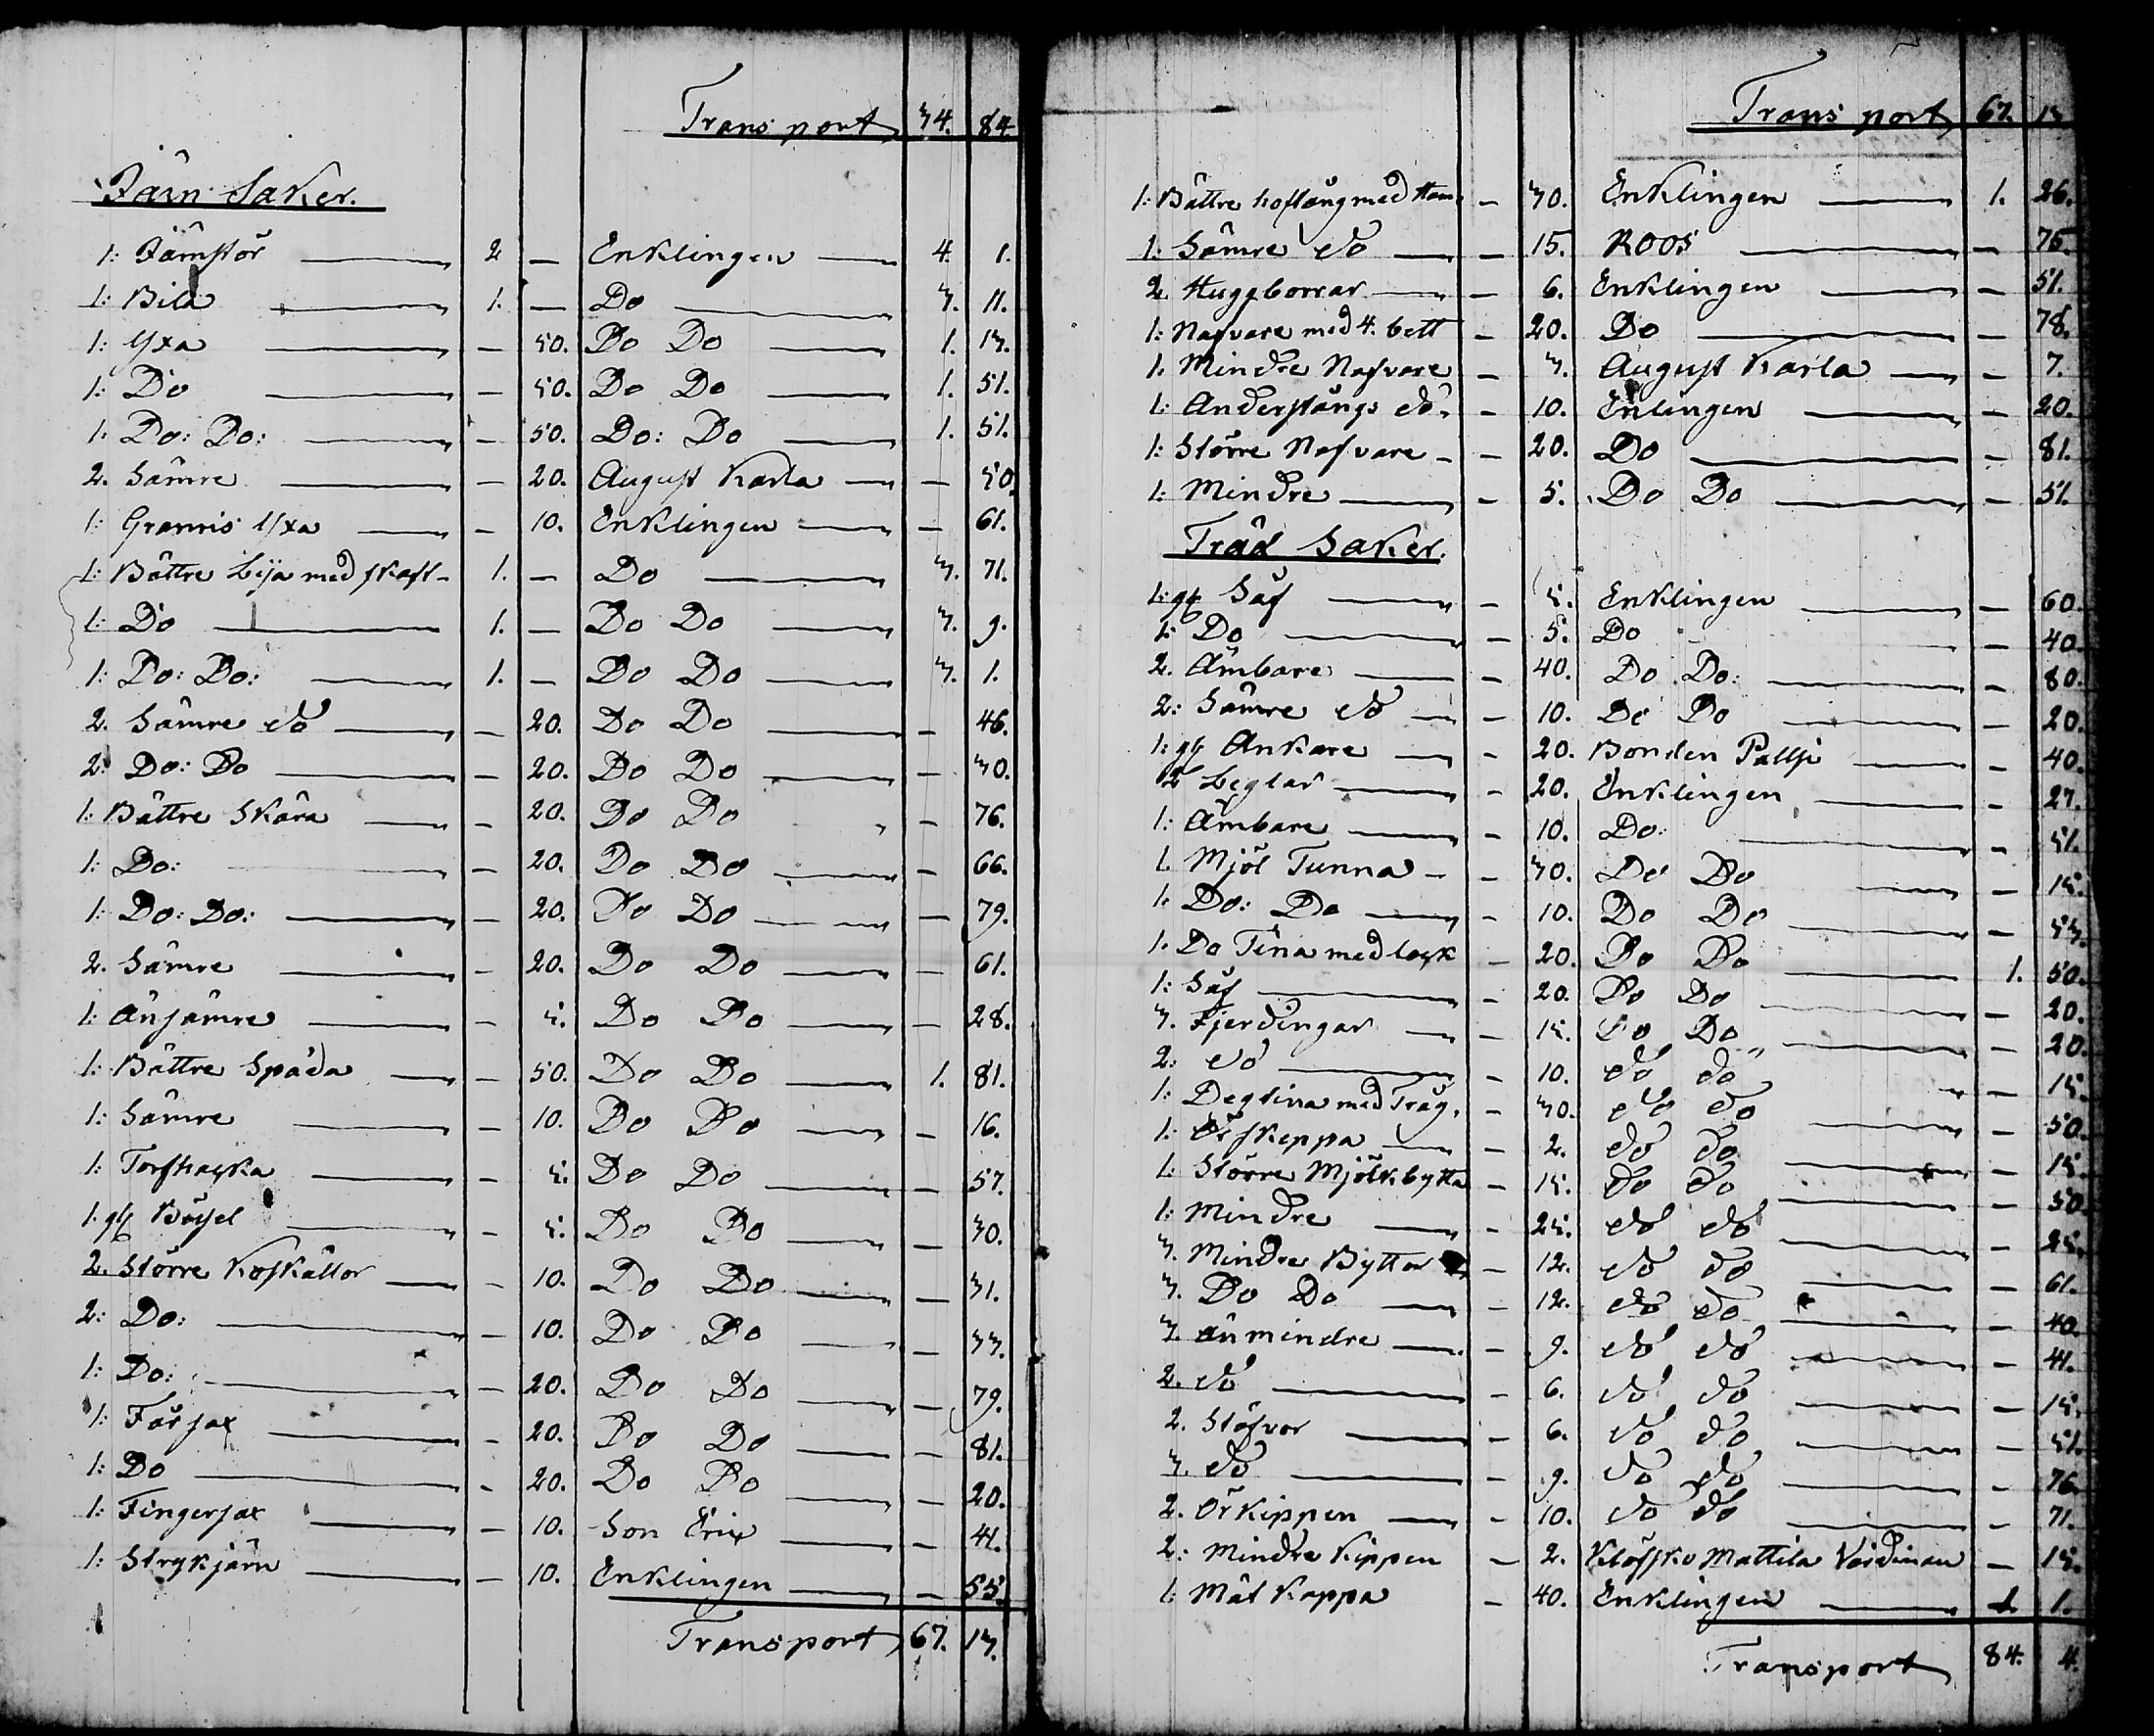 Transport 34. 84.
Järn Saker.
1: Järnstör 2 — Enklingen 4. 1.
1: Bila 1. — Do 3. 11.
1: Yxa — 50. Do Do 1. 13.
1: Do — 50. Do Do 1. 51.
1: Do: Do: — 50. Do: Do 1. 51.
2. Sämre — 20. August Karla — 50.
1: Grannis Yxa — 10. Enklingen — 61.
1: Bättre Lija med skaft 1. — Do 3. 71.
1: Do 1. — Do Do 3. 9.
1: Do: Do: 1. — Do Do 3. 1.
2. Sämre do — 20. Do Do — 46.
2: Do: Do — 20. Do Do — 30.
1: Bättre Skära — 20. Do Do — 76.
1: Do: — 20. Do Do — 66.
1: Do: Do: — 20. Do Do — 79.
2. Sämre — 20. Do Do — 61.
1: Änsämre — 5. Do Do — 28.
1: Bättre Spada — 50. Do Do 1. 81.
1: Sämre — 10. Do Do — 16.
1: Torfhacka — 5. Do Do — 57.
1. gl Böjel — 5. Do Do — 30.
2. Större Koskällor — 10. Do Do — 31.
2: Do: — 10. Do Do — 33.
1: Do: — 20. Do Do — 79.
1: Fårsax — 20. Do Do — 81.
1: Do — 20. Do Do — 20.
1: Fingersax — 10. Son Eric — 41.
1: Strykjärn — 10. Enklingen — 55.
Transport 67. 13.
Transport 67. 13
1: Bättre hoftång med Ham — 30. Enklingen 1. 26.
1: Sämre do — 15. Roos — 75.
2. Huggborrar — 6. Enklingen — 51.
1: Nafvare med 4. bett — 20. Do — 78.
1. Mindre Nafvare — 3. August Karla — 7.
1: Anderstångs do — 10. Enlingen — 20.
1: Större Nafvare — 20. Do — 81.
1: Mindre — 5. Do Do — 51.
Träd Saker.
1: gl Såf — 5. Enklingen — 60.
1: Do — 5. Do — 40.
2. Ämbare — 40. Do Do: — 80.
2: Sämre do — 10. Do Do — 20.
1: gl Ankare — 20. Bonden Pallsi — 40.
2 Leglar — 20. Enklingen — 27.
1: Ämbare — 10. Do: — 51.
1. Mjöl Tunna — 30. Do Do — 15.
1. Do: Do — 10. Do Do — 53.
1. Do Tina med lock — 20. Do Do 1. 50.
1: Såf — 20. Do Do — 20.
3. Fjerdingar — 15. Do Do — 20.
2: do — 10. do do — 15.
1: Degtina med Tråg. — 30. do do — 50.
1: skeppa — 2. do do — 15.
1: Större Mjölkbytta — 15. do do — 50
1: Mindre — 25. do do — 25.
3. Mindre Byttor — 12. do do — 61.
3. Do Do — 12. do do — 40.
3. än mindre — 9. do do — 41.
2. do — 6. do do — 15.
2. Stäfvor — 6. do do — 51.
3. do — 9. do do — 76.
2. Örkippen — 10. do do — 71.
2: Mindre Kippen — 2. Mattila — 15.
1: Mål Kappa — 40. Enklingen 1. 1.
Transport 84. 4.